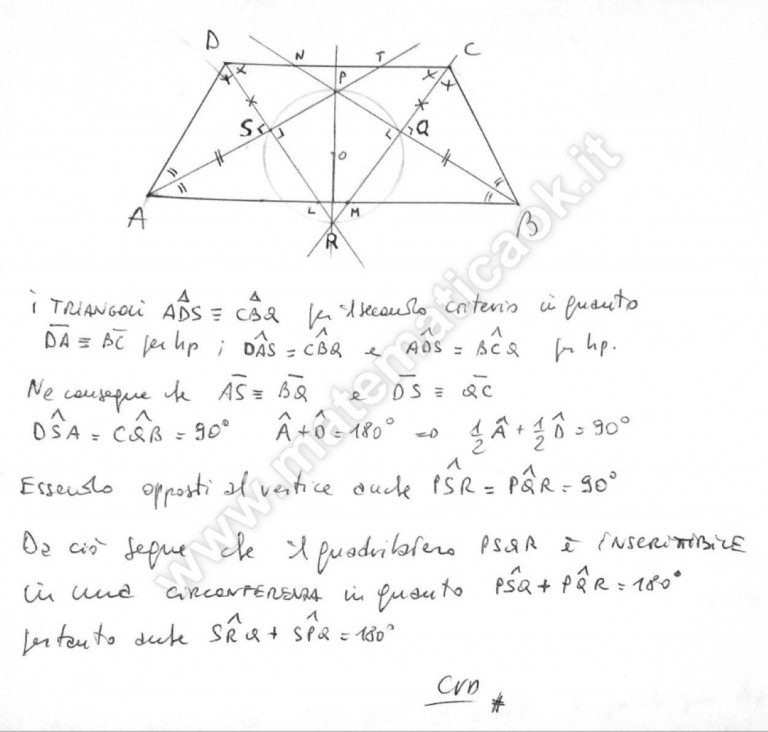 D N T C
P
S Q
O
A L M B
R
i TRIANGOLI AD̂S ≡ CB̂Q per il secondo criterio in quanto
DA ≡ BC per hp ; DÂS = CB̂Q e AD̂S = BĈQ per hp.
Ne consegue che AS ≡ BQ e DS ≡ QC
DŜA = CQ̂B = 90° Â + D̂ = 180° => 1/2 Â + 1/2 D̂ = 90°
Essendo opposti al vertice anche PŜR = PQ̂R = 90°
Da ciò segue che il quadrilatero PSQR è INSCRITTIBILE
in una CIRCONFERENZA in quanto PŜQ + PQ̂R = 180°
pertanto anche SR̂Q + SP̂Q = 180°
CVD #
www.matematicaok.it